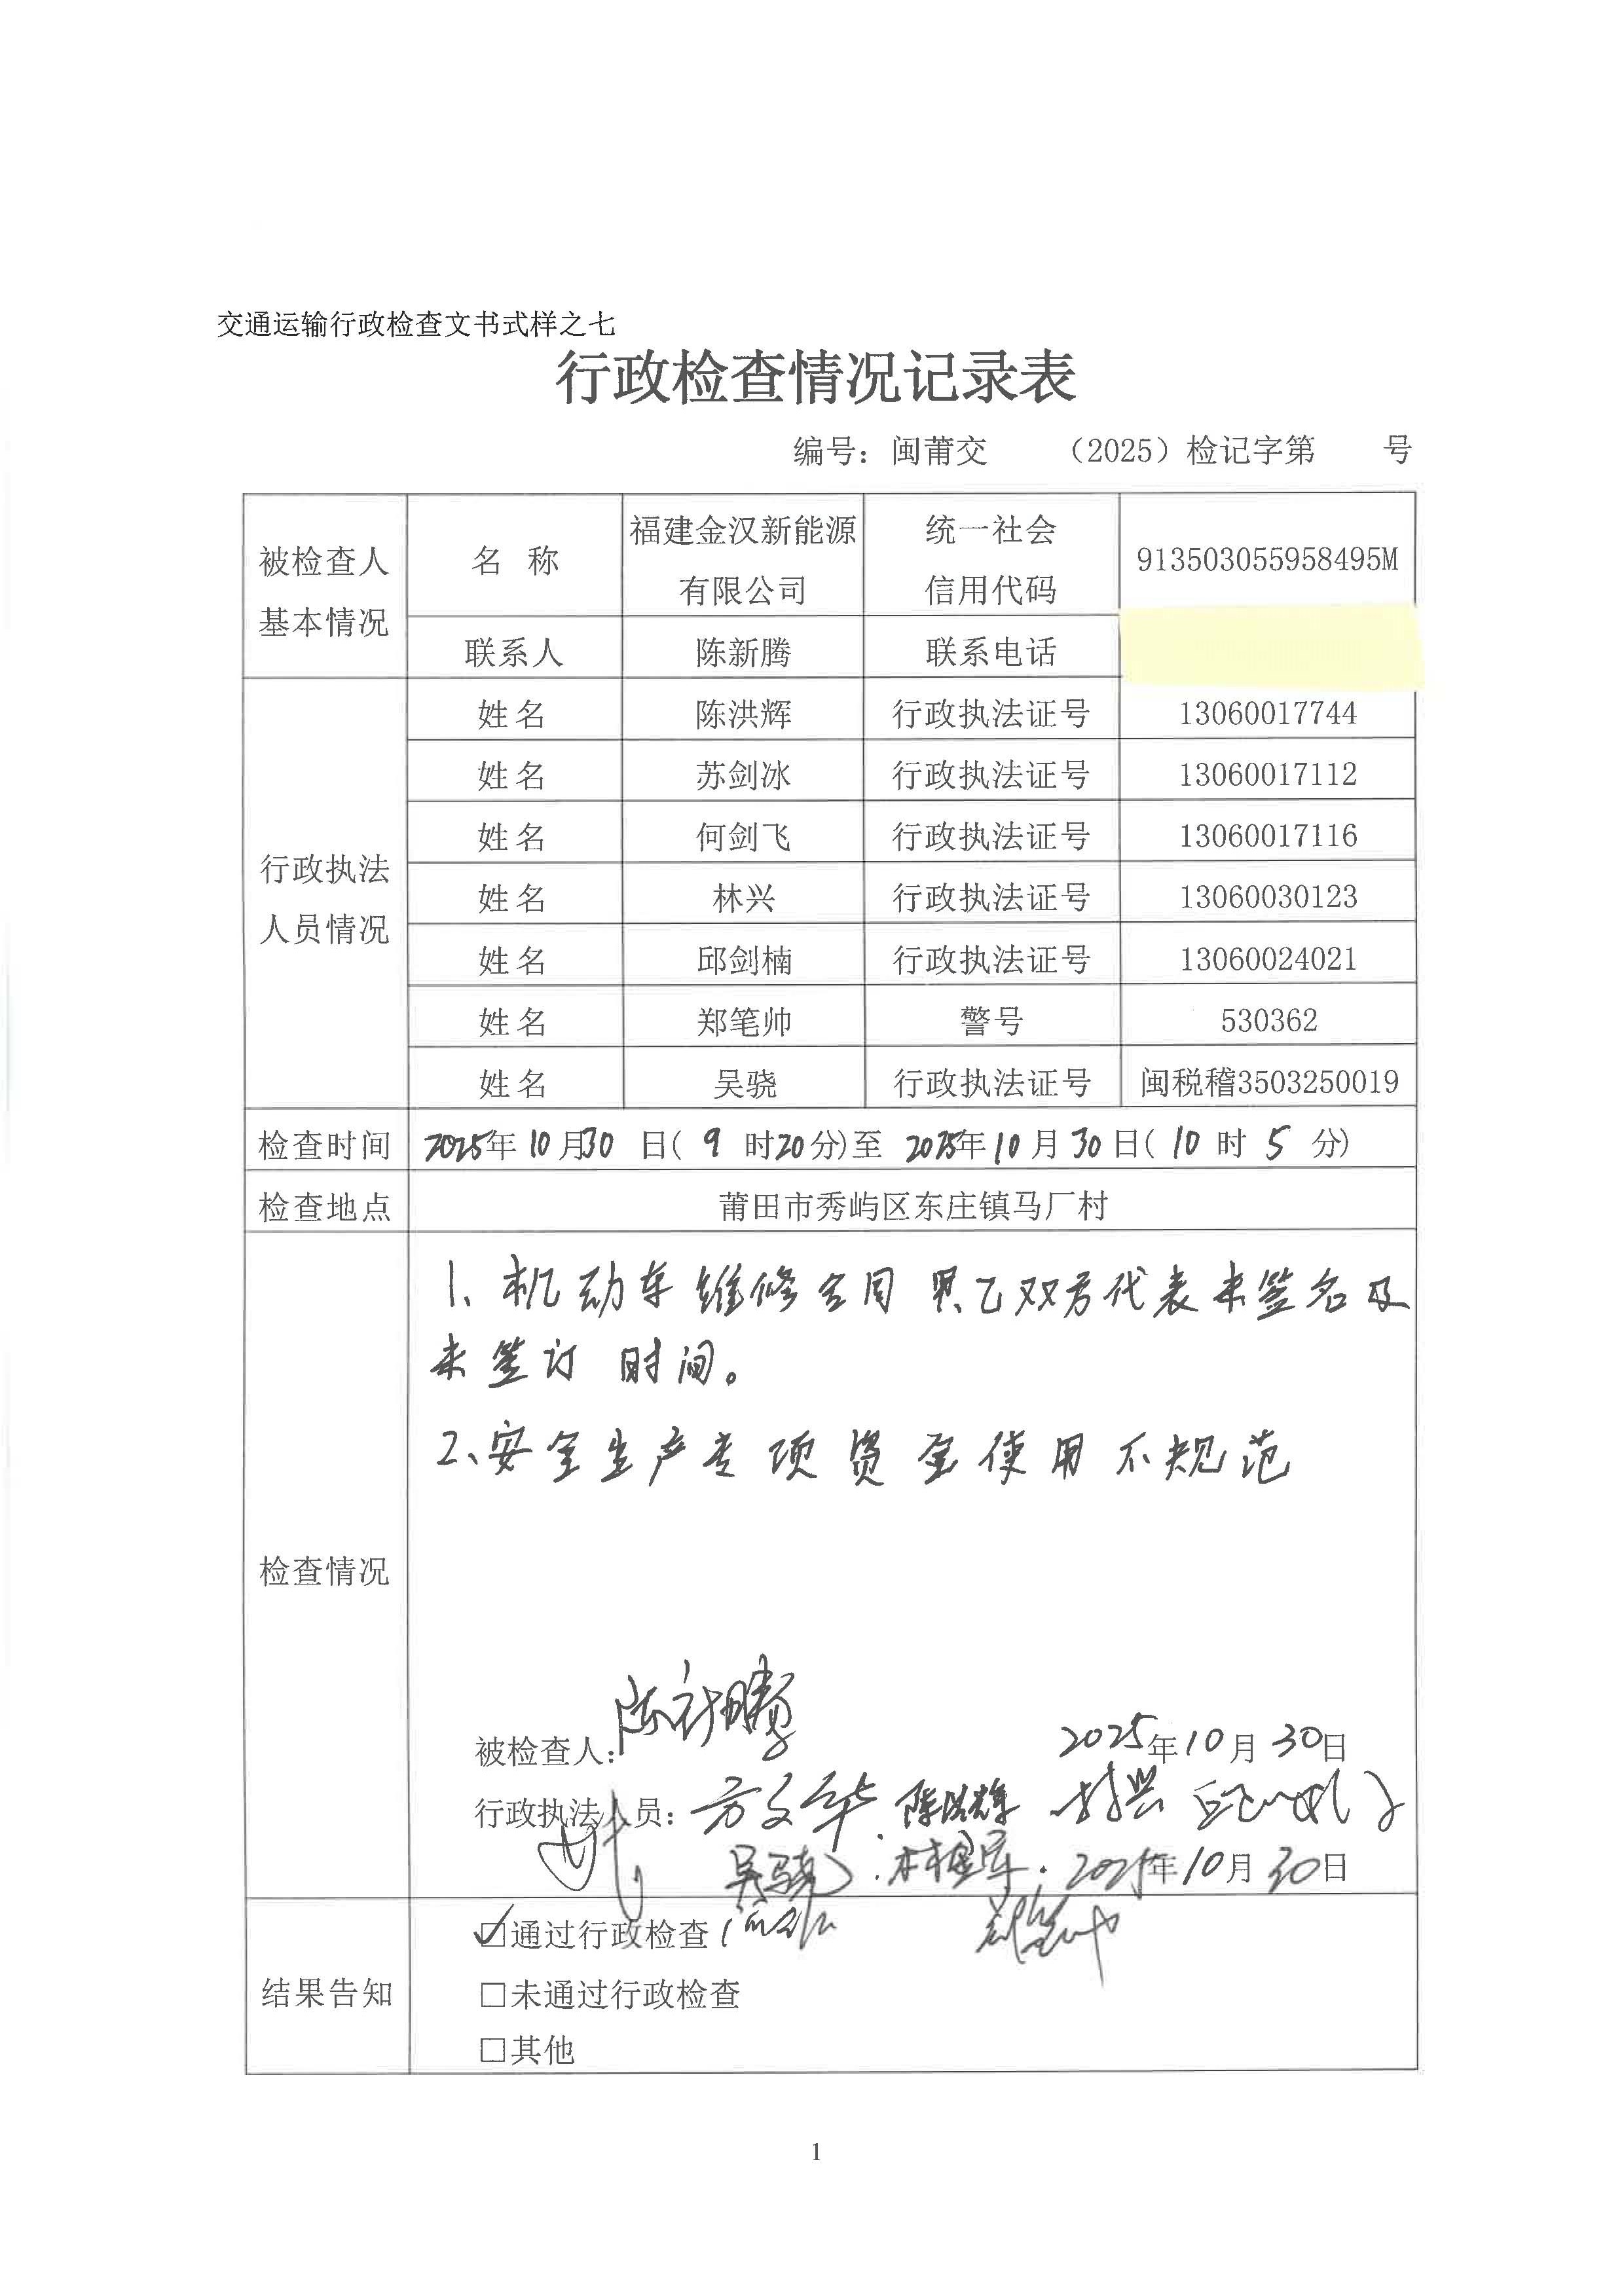 交通运输行政检查文书式样之七
行政检查情况记录表
编号：闽莆交 （2025）检记字第 号
被检查人基本情况 名 称 福建金汉新能源有限公司 统一社会信用代码 913503055958495M
联系人 陈新腾 联系电话
行政执法人员情况 姓名 陈洪辉 行政执法证号 13060017744
姓名 苏剑冰 行政执法证号 13060017112
姓名 何剑飞 行政执法证号 13060017116
姓名 林兴 行政执法证号 13060030123
姓名 邱剑楠 行政执法证号 13060024021
姓名 郑笔帅 警号 530362
姓名 吴骁 行政执法证号 闽税稽3503250019
检查时间 2025年10月30日（9时20分）至 2025年10月30日（10时5分）
检查地点 莆田市秀屿区东庄镇马厂村
检查情况
1、机动车维修合同 甲乙双方代表未签名及
未签订 时间。
2、安全生产专项资金使用不规范
被检查人：陈新腾 2025年10月30日
行政执法人员：方文华 陈洪辉 林兴
吴骁 2025年10月30日
郑笔帅
结果告知
☑通过行政检查
□未通过行政检查
□其他
1